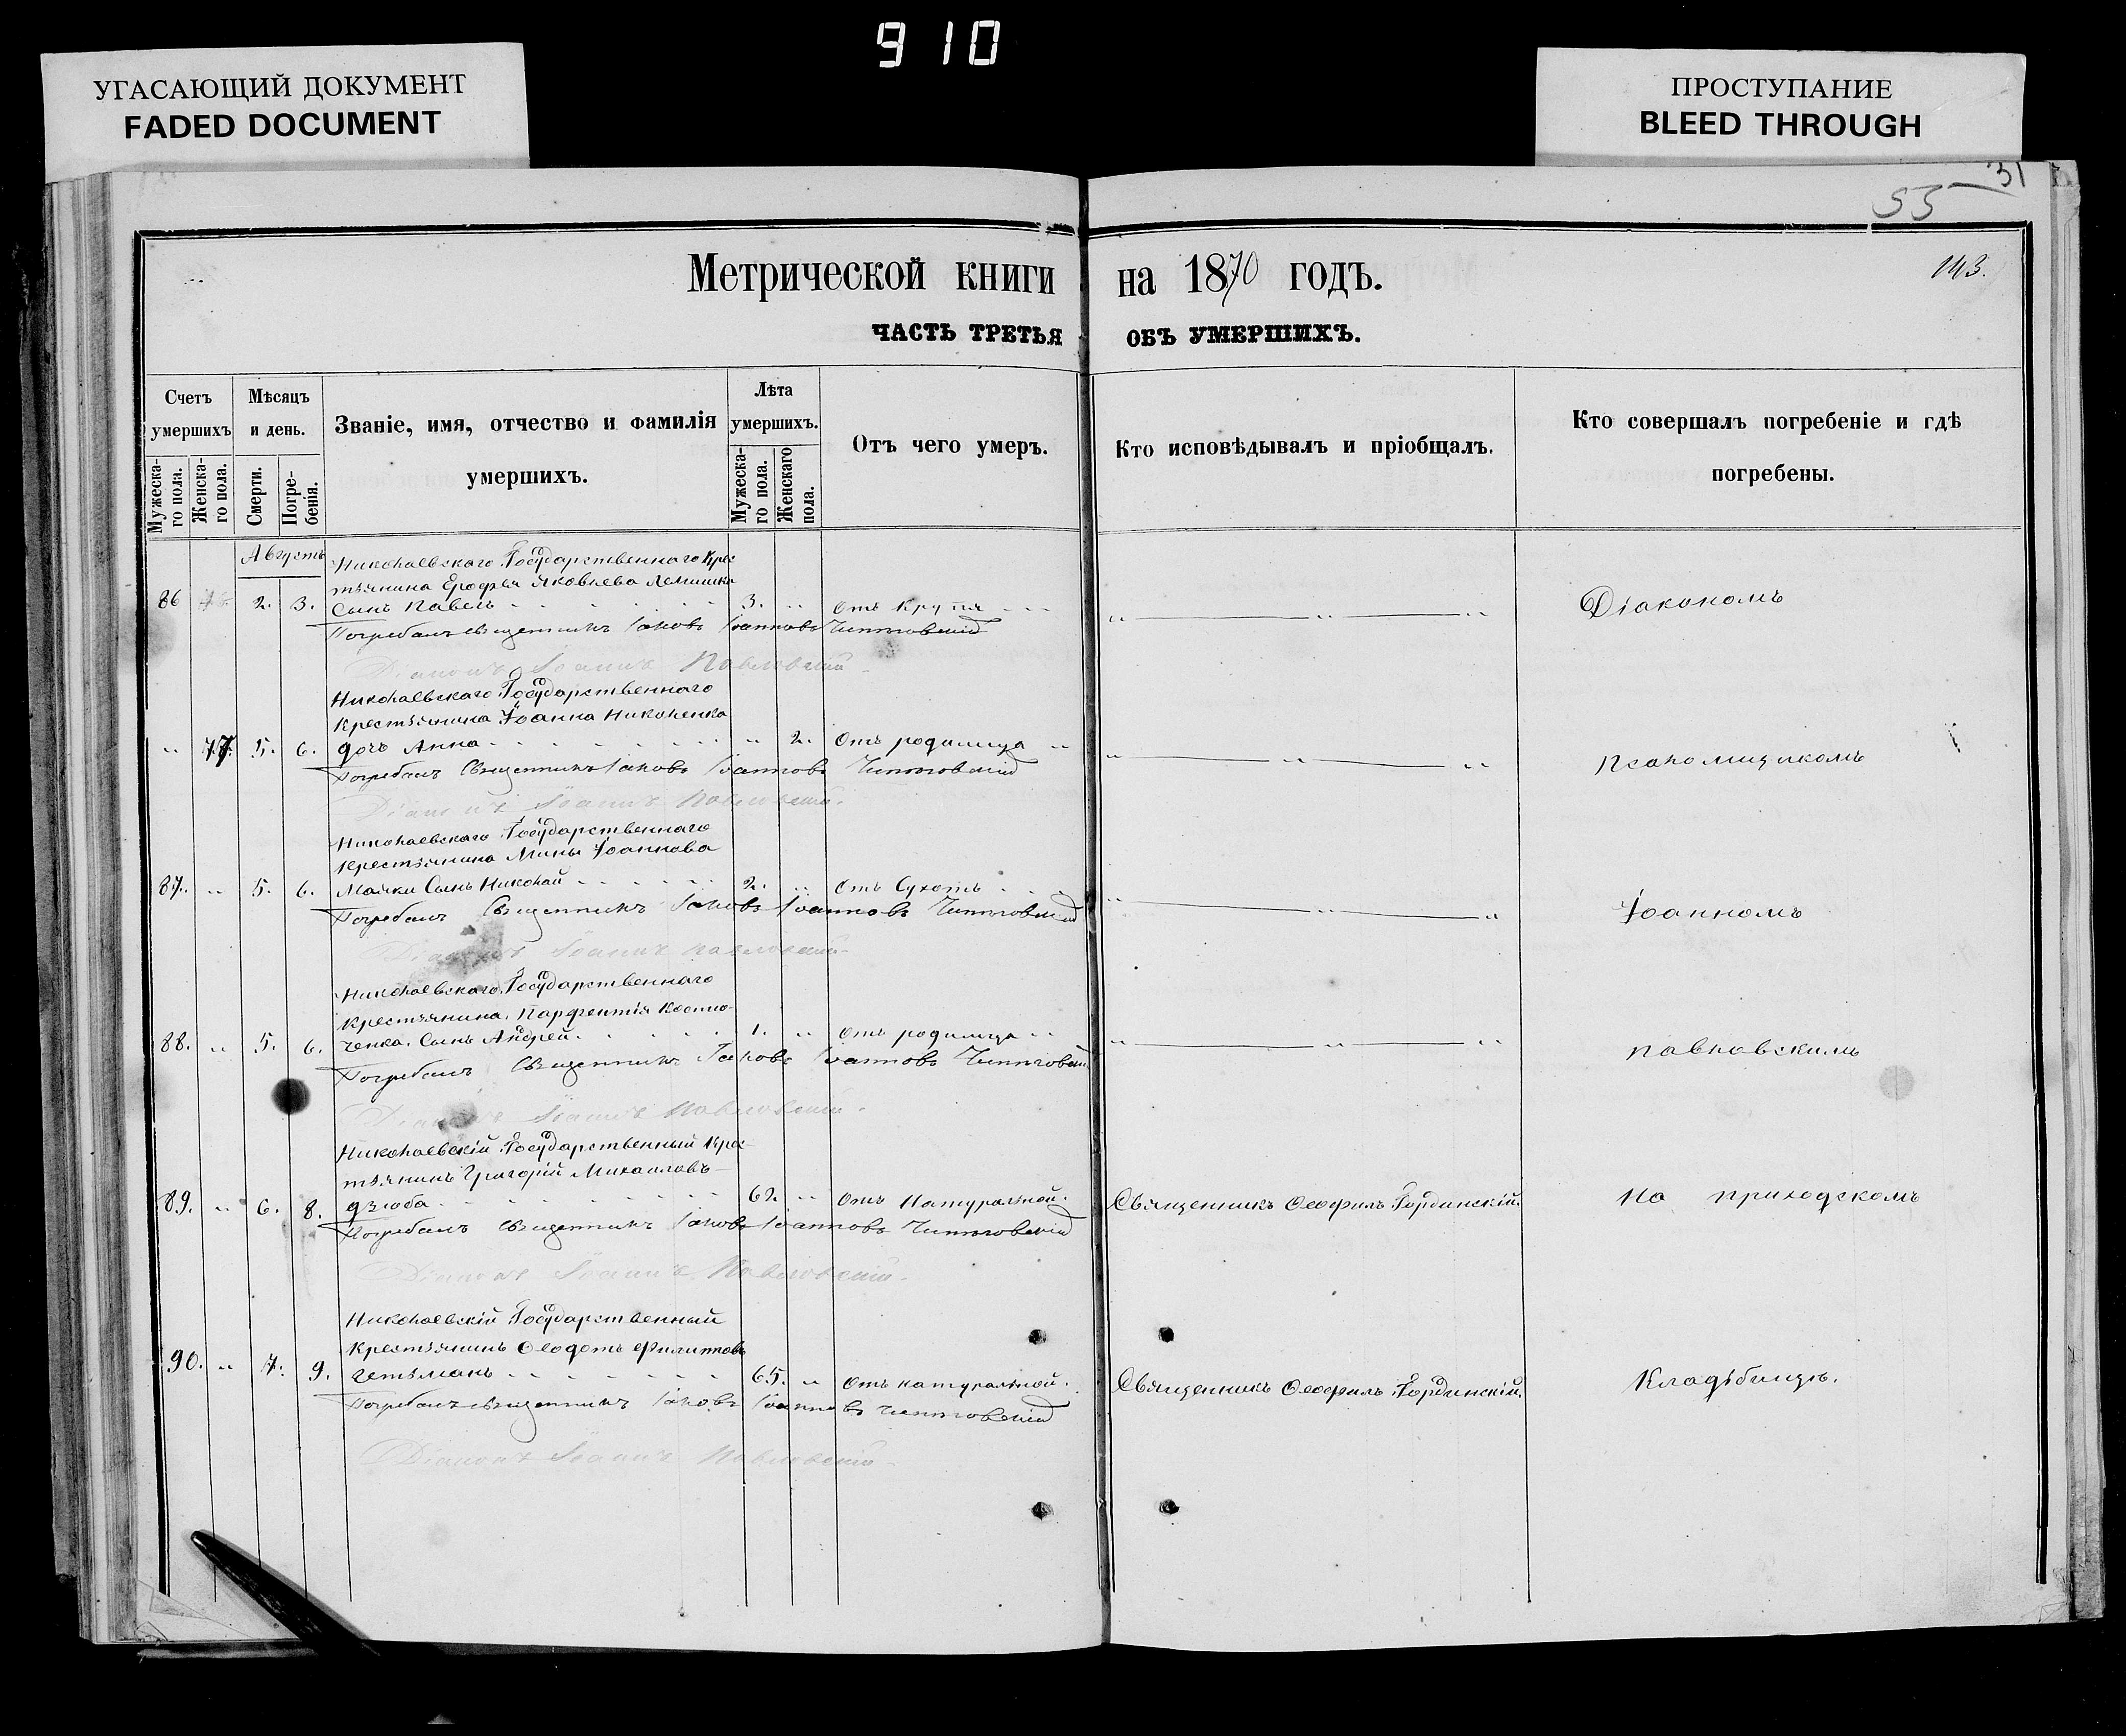 910
УГАСАЮЩИЙ ДОКУМЕНТ
FADED DOCUMENT
ПРОСТУПАНИЕ
BLEED THROUGH
31
55
143.
Метрической книги на 1870 годъ.
ЧАСТЬ ТРЕТЬЯ ОБЪ УМЕРШИХЪ.
Счетъ умершихъ
Мужеска-го пола.
Женска-го пола.
Мѣсяцъ и день.
Смерти.
Погре-бенія.
Званіе, имя, отчество и фамилія умершихъ.
Лѣта умершихъ.
Мужеска-го пола.
Женскаго пола.
Отъ чего умеръ.
Кто исповѣдывалъ и пріобщалъ.
Кто совершалъ погребеніе и гдѣ погребены.
Августъ
Николаевскаго Государственнаго Крес-
тьянина Ерофѣя Яковлева
86 2. 3. Сынъ Павелъ 3. " Отъ Крупа " " " Діакономъ
Погребалъ священникъ Іаковъ Іоанновъ
Діаконъ Іоаннъ Павловскій
Николаевскаго Государственнаго
Крестьянина Іоанна Никоненка
" 77. 5. 6. дочь Анна " 2. Отъ родимца " " " " Псаломщикомъ
Погребалъ Священникъ Іаковъ Іоанновъ
Діаконъ Іоаннъ Павловскій.
Николаевскаго Государственнаго
Крестьянина Мины Іоаннова
87. " 5. 6. Майки Сынъ Николай 2. " Отъ Сухотъ " " " Іоанномъ
Погребалъ Священникъ Іаковъ Іоанновъ
Діаконъ Іоаннъ Павловскій
Николаевскаго Государственнаго
Крестьянина Парфентія Костю-
88. " 5. 6. ченка. Сынъ Андрей. 1. " Отъ родимца " " " " Павловскимъ
Погребалъ Священникъ Іаковъ Іоанновъ
Діаконъ Іоаннъ Павловскій.
Николаевскій Государственный Крес-
тьянинъ Григорій Михаиловъ
89. " 6. 8. Дзюба 62. " Отъ Натуральной. Священникъ Ѳеофилъ Гординскій. На приходскомъ
Погребалъ Священникъ Іаковъ Іоанновъ
Діаконъ Іоаннъ Павловскій.
Николаевскій Государственный
Крестьянинъ Ѳеодотъ Филипповъ
90. " 7. 9. Гетьманъ 65. " Отъ натуральной. Священникъ Ѳеофилъ Гординскій. Кладьбищѣ.
Погребалъ священникъ Іаковъ Іоанновъ
Діаконъ Іоаннъ Павловскій